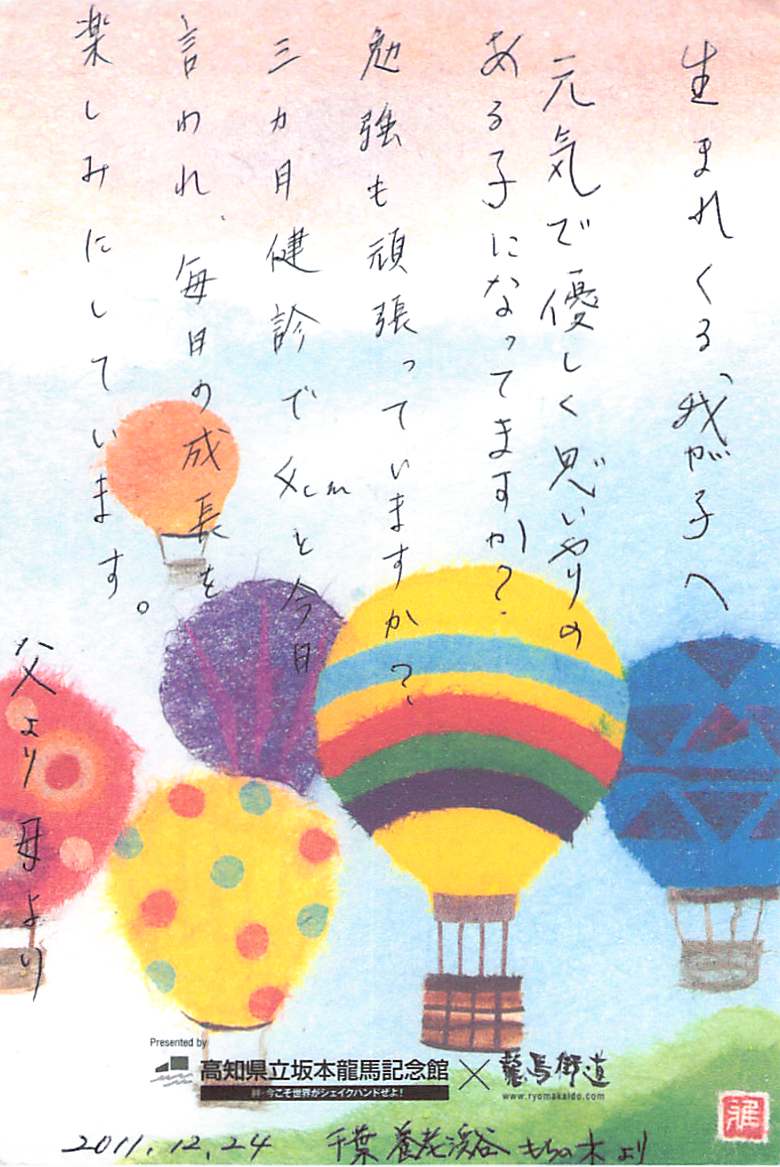 生まれくる、我が子へ
元気で優しく思いやりの
ある子になってますか?
勉強も頑張っていますか?
三カ月健診で 4cmと今日
言われ、毎日の成長を
楽しみにしています。
父より 母より
Presented by
高知県立坂本龍馬記念館×龍馬街道
絆・今こそ世界がシェイクハンドせよ!
www.ryomakaido.com
2011.12.24 千葉 養老渓谷 もちの木より